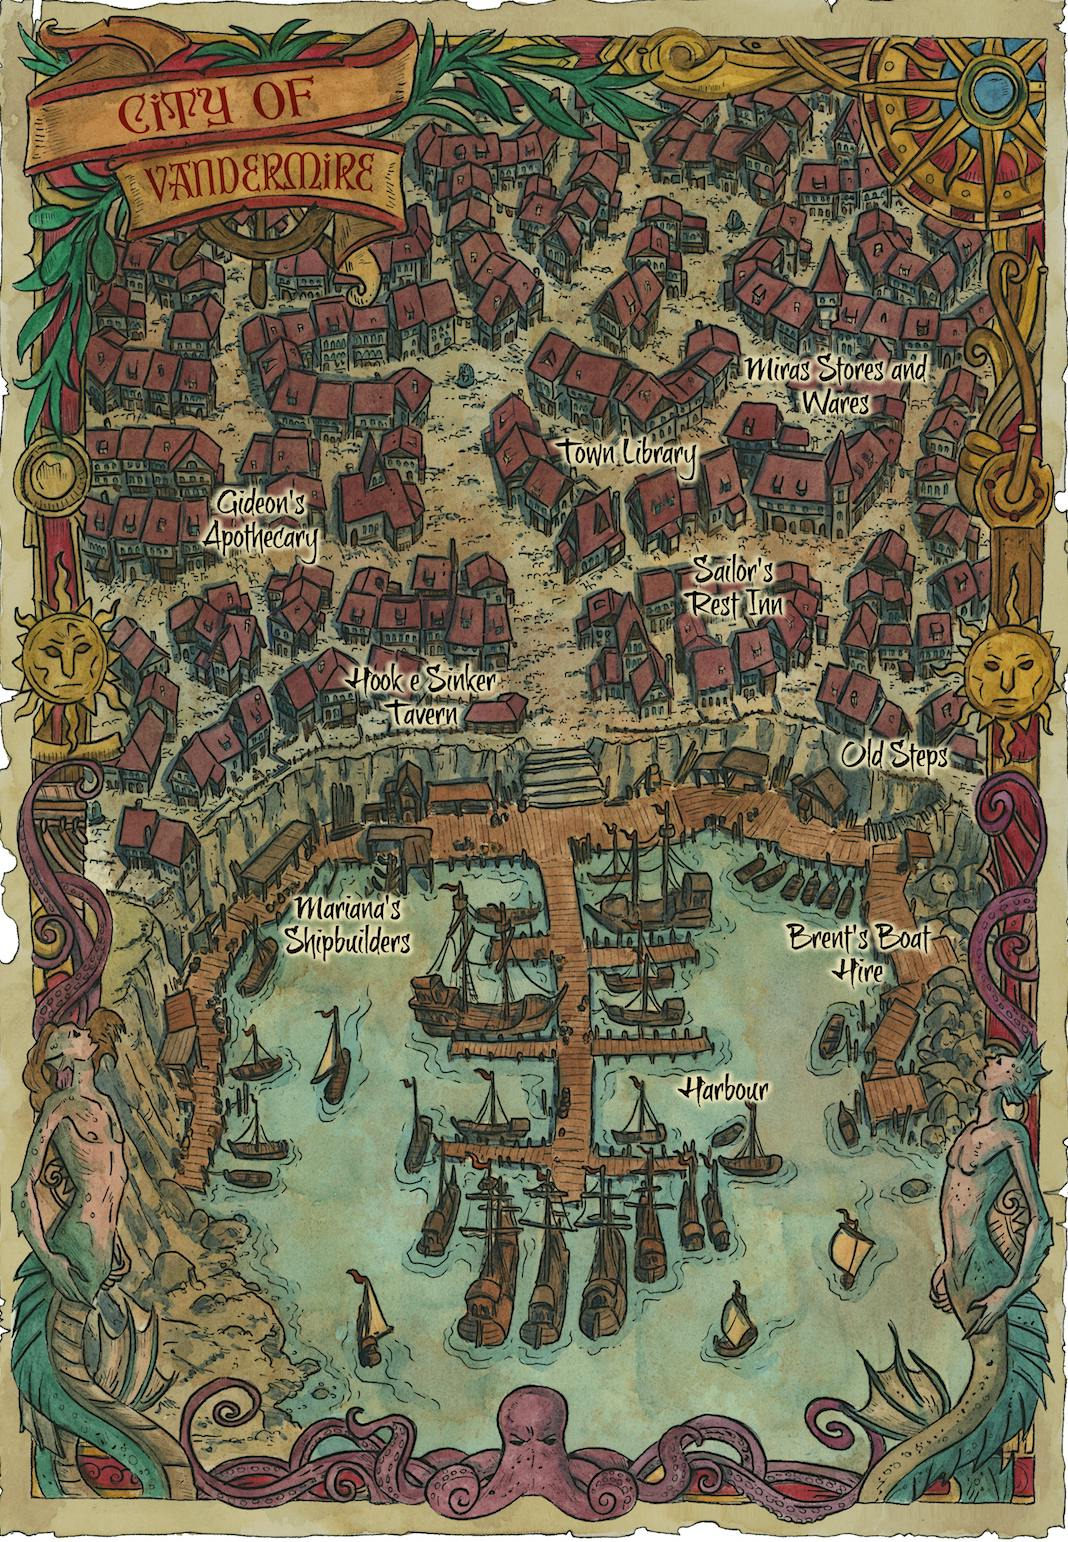 CITY OF
VANDERMIRE
Miras Stores and
Wares
Town Library
Gideon's
Apothecary
Sailor's
Rest Inn
Hook e Sinker
Tavern
Old Steps
Mariana's
Shipbuilders
Brent's Boat
Hire
Harbour